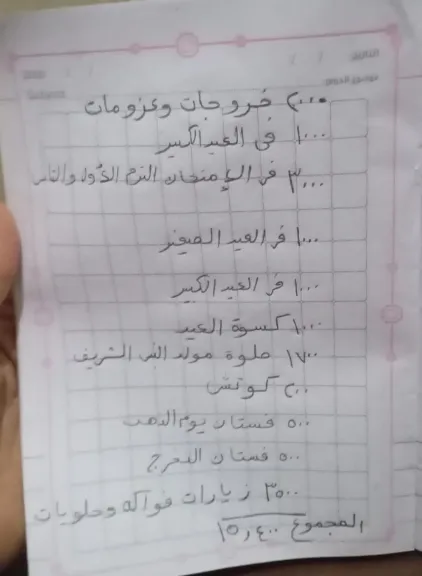 التاريخ / /
موضوع الدرس
٢٠٠٠ خروجات وعزومات
١٠٠٠ فى العيد الكبير
٣٠٠٠ فى الإمتحان الترم الأول والثانى
١٠٠٠ فى العيد الصغير
١٠٠٠ فى العيد الكبير
١٠٠٠ كسوة العيد
١٧٠٠ حلوة مولد النبى الشريف
٢٠٠ كوتش
٥٠٠ فستان يوم الدهب
٥٠٠ فستان التخرج
٣٥٠٠ زيارات فواكه وحلويات
المجموع ١٥,٤٠٠